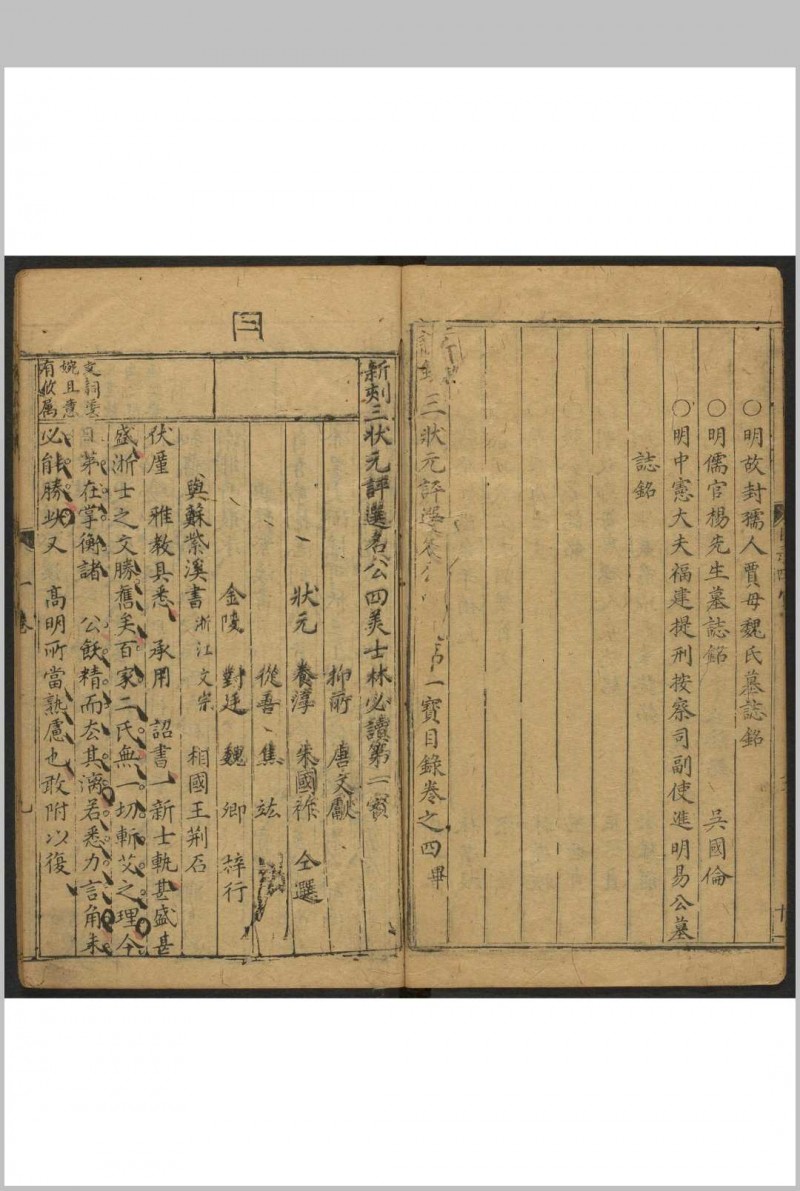 ○明故封孺人賈母魏氏墓誌銘
○明儒官楊先生墓誌銘 吳國倫
○明中憲大夫福建提刑按察司副使進明易公墓
誌銘
三狀元評選 一寳目錄卷之四畢
三
新刻三狀元評選名公四美士林必讀第二寳
抑所 唐文獻
狀元 養淳 朱國祚 仝選
從吾 焦竑
金陵 對廷 魏卿 梓行
與蘇紫溪書 浙江文宗 相國王荆石
伏厪 雅教具悉 承用 詔書一新士軌甚盛甚
盛浙士之文勝舊矣百家二氏無一切斬艾之理今
文詞
婉且意
有攸属
且第在掌衡諸 公飫精而去其漓若悉力言角未
必能勝此又 高明所當熟慮也敢附以復
一卷